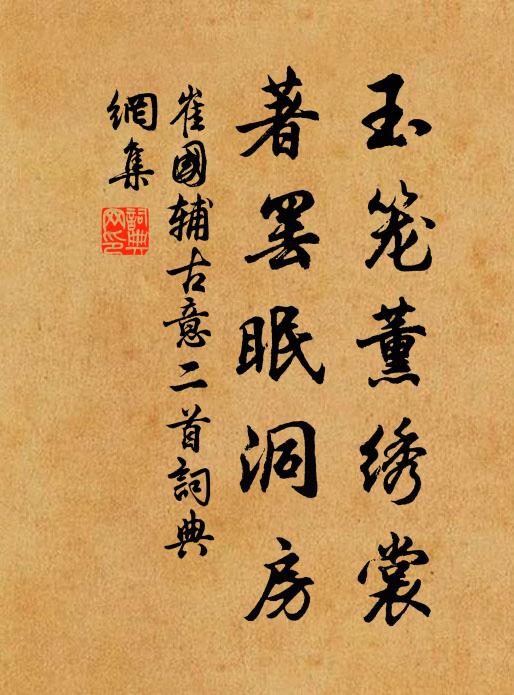 玉笼薰绣裳
著罢眠洞房
崔國辅古意二首詞典
網集
詞典
网印